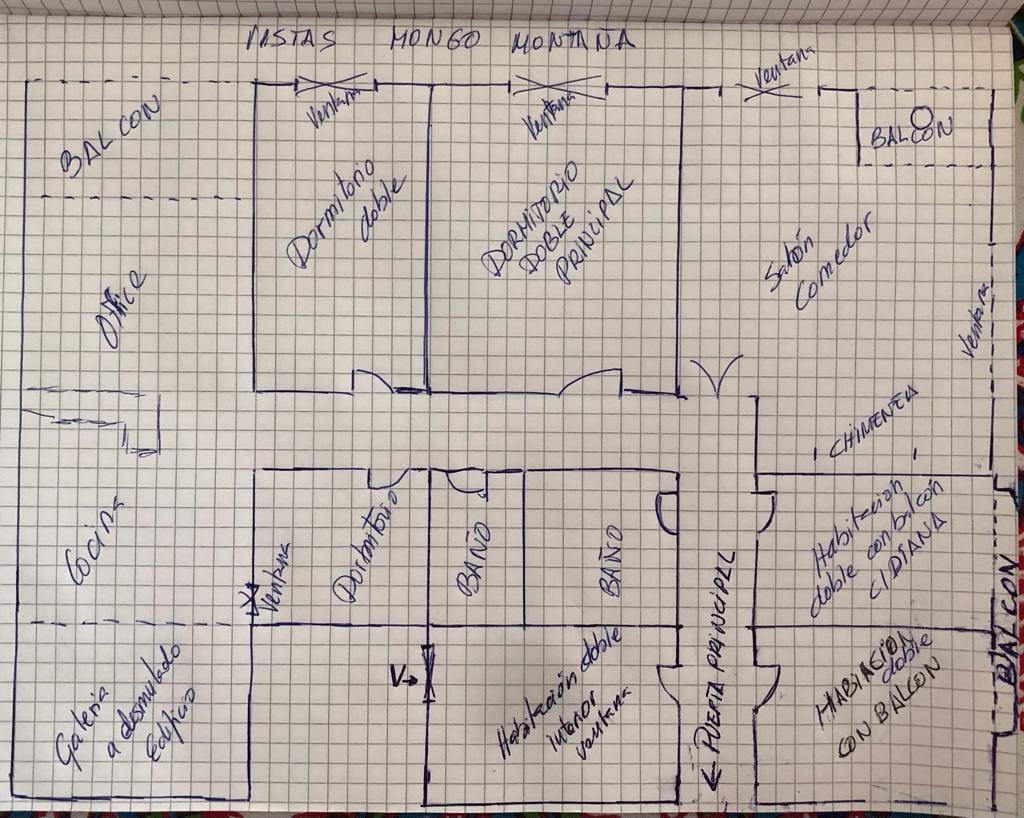 VISTAS MONGO MONTAÑA
BALCON
Ventana
Ventana
Ventana
BALCON
Dormitorio
doble
DORMITORIO
DOBLE
PRINCIPAL
Salón
Comedor
Office
Ventana
CHIMENEA
Cocina
Ventana
Dormitorio
BAÑO
BAÑO
Habitacion
doble con balcon
C/DIANA
BALCON
Galeria
a
Edificio
V→
Habitación doble
interior
ventana
← PUERTA PRINCIPAL
HABIACION
doble
CON BALCON